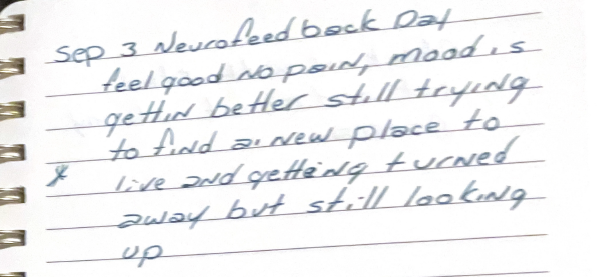 Sep 3 Neurofeedback Day
feel good no pain, mood is
gettin better still trying
to find a new place to
* live and getting turned
away but still looking
up